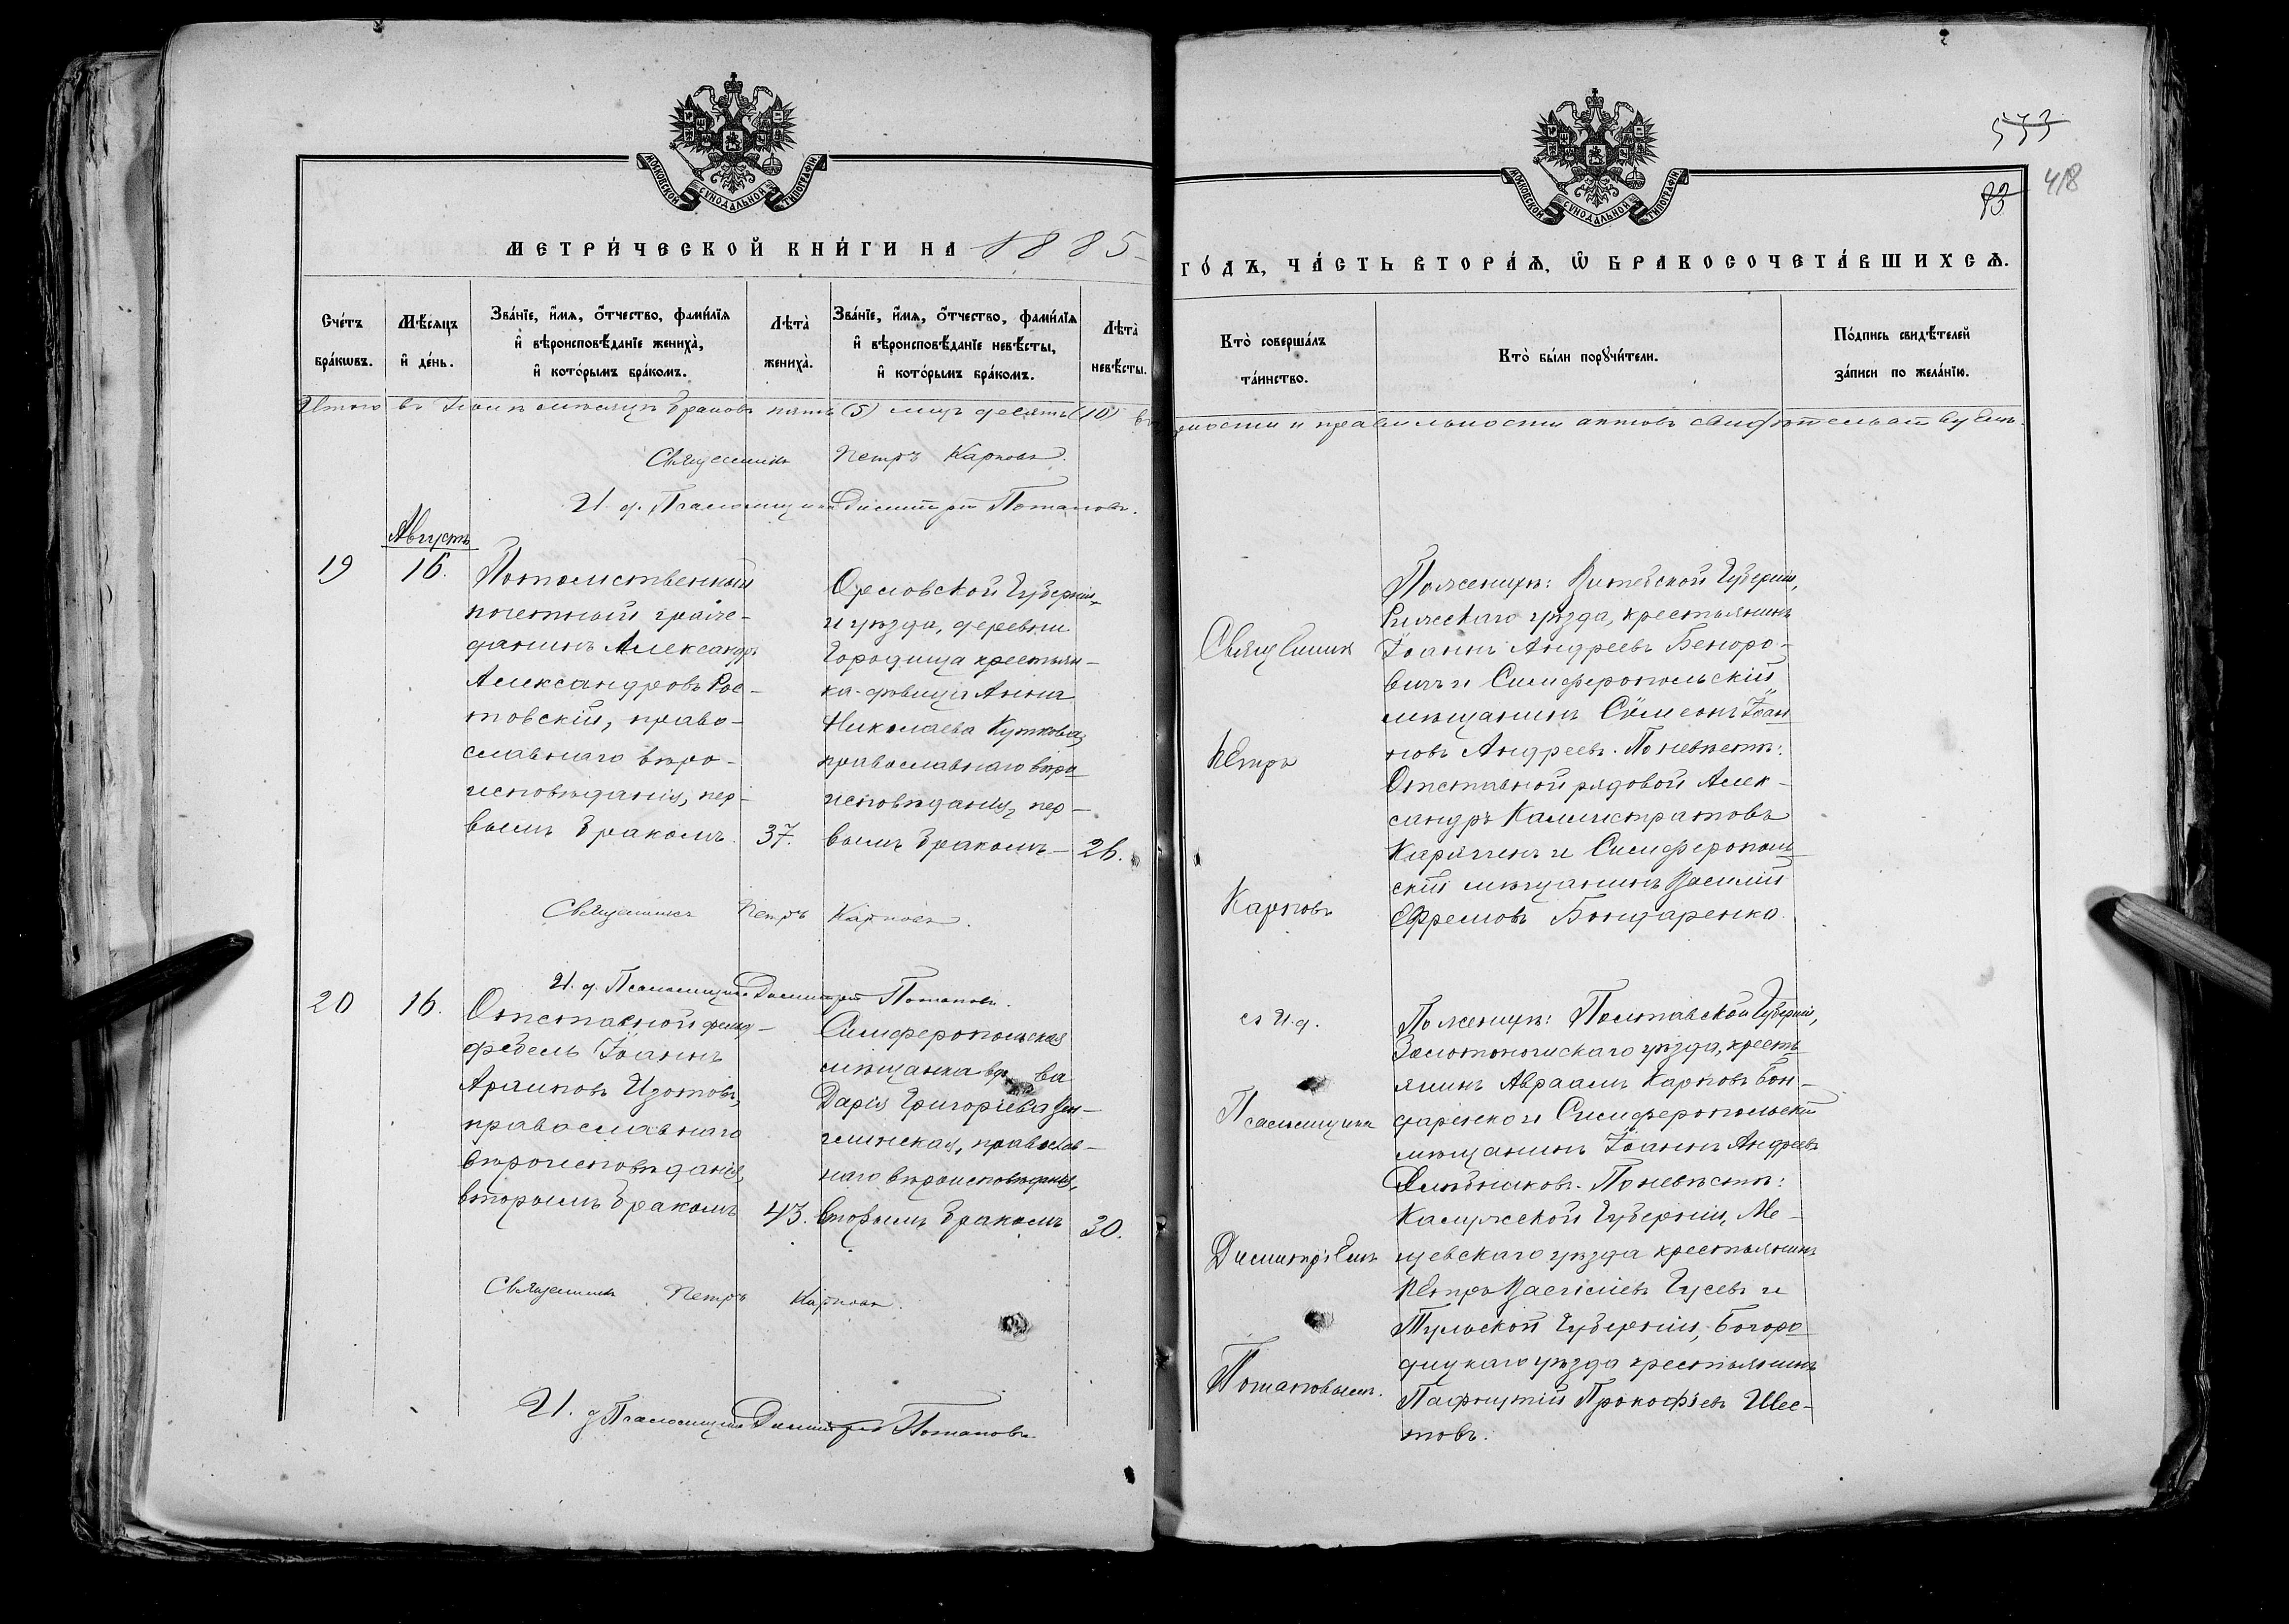 533
418
93
МОСКОВСКОЙ СУНОДАЛЬНОЙ ТИПОГРАФІИ
МОСКОВСКОЙ СУНОДАЛЬНОЙ ТИПОГРАФІИ
МЕТРИ́ЧЕСКОЙ КНИ́ГИ НА 1885
ГО́ДЪ, ЧА́СТЬ ВТОРА́Ѧ, Ѽ БРАКОСОЧЕТА́ВШИХСѦ.
Сче́тъ бра́кѡвъ.
Мѣ́сяцъ и́ де́нь.
Зва́нїе, и́мѧ, ѻ́тчество, фами́лїѧ
и҆ вѣроисповѣ́данїе жениха̀,
и҆ кото́рымъ бра́комъ.
Лѣта̀ жениха̀.
Зва́нїе, и́мѧ, ѻ́тчество, фами́лїѧ
и҆ вѣроисповѣ́данїе невѣ́сты,
и҆ кото́рымъ бра́комъ.
Лѣта̀ невѣ́сты.
Кто̀ соверша́лъ
та́инство.
Кто̀ бы́ли порꙋчи́тели.
По́дпись свидѣ́телей
за́писи по жела́нїю.
Итого въ Іюлѣ мѣсяцѣ браковъ пять (5) лицъ десять (10) въ
рности и правильности актовъ свидѣтельствуемъ.
Священникъ Петръ Карповъ.
И. д. Псаломщика Димитрій Потаповъ.
Августъ
19
16.
Потомственный
почетный граж-
данинъ Александръ
Александровъ Рос-
товскій, право-
славнаго вѣро-
исповѣданія, пер-
вымъ бракомъ.
37.
Орловской Губерніи,
и уѣзда, деревни
Городища крестьян-
ка-дѣвица Анна
Николаева Куткова,
православнаго вѣро
исповѣданія, пер-
вымъ бракомъ
26.
Священникъ
Петръ
Карповъ
По женихѣ: Витебской Губерніи,
Рижскаго уѣзда, крестьянинъ
Іоаннъ Андреевъ Беноро-
вичъ и Симферопольскій
мѣщанинъ Сѵмеонъ Іоан
новъ Андреевъ. По невѣстѣ:
Отставной рядовой Алек-
сандръ Каллистратовъ
Карягинъ и Симферополь
скій мѣщанинъ Василій
Ефремовъ Бондаренко.
Священникъ Петръ Карповъ.
И. д. Псаломщика Димитрій Потаповъ.
20
16.
Отставной фельд-
фебель Іоаннъ
Архиповъ Изотовъ,
православнаго
вѣроисповѣданія,
вторымъ бракомъ
43.
Симферопольская
мѣщанка вдова
Дарія Григоріева
глинская, православ-
наго вѣроисповѣданія,
вторымъ бракомъ
30.
съ И. д.
Псаломщика
Димитріемъ
Потаповымъ.
По женихѣ: Полтавской Губерніи,
Золотоношскаго уѣзда, кресть
янинъ Авраамъ Карповъ Бон-
даренко и Симферопольскій
мѣщанинъ Іоаннъ Андреевъ
По невѣстѣ:
Калужской Губерніи, Ме-
щевскаго уѣзда крестьянинъ
Петръ Васильевъ Гусевъ и
Тульской Губерніи, Богоро
дицкаго уѣзда крестьянинъ
Пафнутій Прокофьевъ Шес-
товъ.
Священникъ Петръ Карповъ.
И. д. Псаломщика Димитрій Потаповъ.